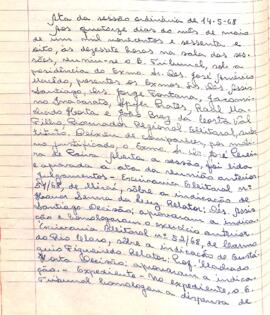 Ata da sessão ordinária de 14-5-68
Aos quatorze dias do mês de maio
de um mil novecentos e sessenta e
oito, às dezessete horas na sala das ses-
sões, reuniu-se o E. Tribunal, sob a
presidência do Exmo. Sr. Des. José Américo
Macêdo, presentes os Exmos. Srs. Des. José
Santiago, Drs. Jorge Fontana,
Inconarato, Prates, Raul
Horta e João Braz da Costa Val
Filho Procurador Regional Eleitoral, subs-
tituto. Deixou de comparecer, por moti-
vo justificado, o Exmo. Sr. Dr. José Perei-
ra de Paiva. Aberta a sessão, foi lida
e aprovada a ata da reunião anterior.
Julgamentos - Escrivania Eleitoral nº
54/68, de Miraí, sôbre a indicação de
Senna da Luz. Relator: Des. José
Santiago. Decisão: aprovaram a indica-
ção e homologaram o exercício anterior.
Escrivania Eleitoral nº 52/68, de Carmo
do Rio Claro, sôbre a indicação de
Figueiredo. Relator: Prof. Machado
Horta. Decisão: aprovaram a indica-
ção. - Expediente - No expediente, o E.
Tribunal homologou a dispensa de